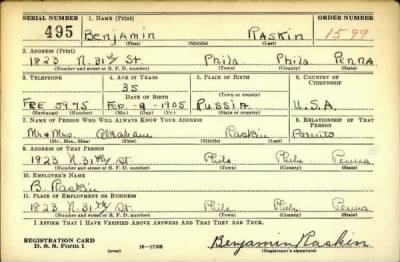 SERIAL NUMBER 1. NAME (Print) ORDER NUMBER
495 Benjamin Raskin 1599
(First) (Middle) (Last)
2. ADDRESS (Print)
1823 N. 31st St. Phila Phila Penna
(Number and street or R. F. D. number) (Town) (County) (State)
3. TELEPHONE 4. AGE IN YEARS 5. PLACE OF BIRTH 6. COUNTRY OF CITIZENSHIP
35
DATE OF BIRTH (Town or county)
FRE 5975 Feb - 9 - 1905 Russia U.S.A.
(Exchange) (Number) (Mo.) (Day) (Yr.) (State or country)
7. NAME OF PERSON WHO WILL ALWAYS KNOW YOUR ADDRESS 8. RELATIONSHIP OF THAT PERSON
Mr & Mrs. Abraham Raskin Parents
(Mr., Mrs., Miss) (First) (Middle) (Last)
9. ADDRESS OF THAT PERSON
1823 N. 31st St. Phila. Phila. Penna
(Number and street or R. F. D. number) (Town) (County) (State)
10. EMPLOYER'S NAME
B. Raskin
11. PLACE OF EMPLOYMENT OR BUSINESS
1823 N. 31st St. Phila. Phila. Penna
(Number and street or R. F. D. number) (Town) (County) (State)
I AFFIRM THAT I HAVE VERIFIED ABOVE ANSWERS AND THAT THEY ARE TRUE.
REGISTRATION CARD
D. S. S. Form 1 (over) 16-17105 Benjamin Raskin
(Registrant's signature)